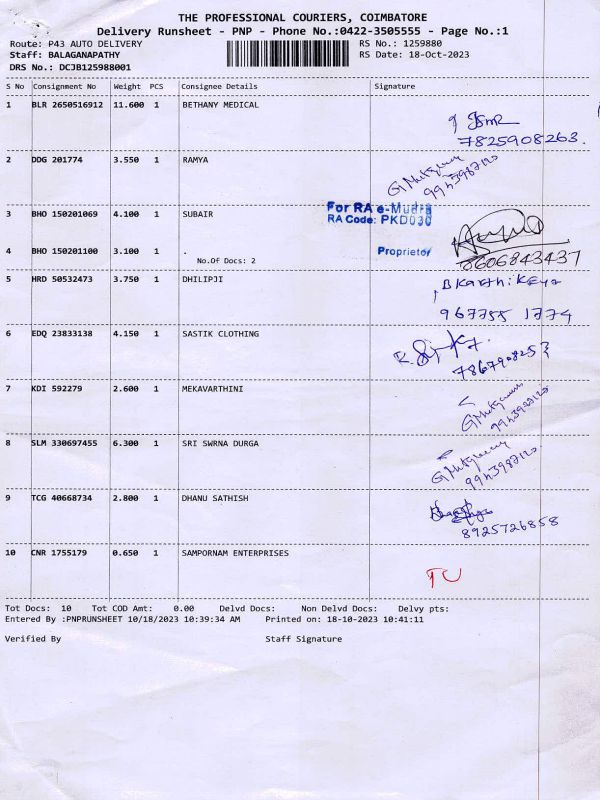 THE PROFESSIONAL COURIERS, COIMBATORE
Delivery Runsheet - PNP - Phone No.:0422-3505555 - Page No.:1
Route: P43 AUTO DELIVERY RS No.: 1259880
Staff: BALAGANAPATHY RS Date: 18-Oct-2023
DRS No.: DCJB125988001
S No Consignment No Weight PCS Consignee Details Signature
1 BLR 2650516912 11.600 1 BETHANY MEDICAL
7825908263.
2 DDG 201774 3.550 1 RAMYA
9943987120
3 BHO 150201069 4.100 1 SUBAIR
For RA e-Mudra
RA Code: PKD030
4 BHO 150201100 3.100 1 .
No.Of Docs: 2
Proprietor
8606843437
5 HRD 50532473 3.750 1 DHILIPJI
BKarthikeya
967755 1774
6 EDQ 23833138 4.150 1 SASTIK CLOTHING
7 KDI 592279 2.600 1 MEKAVARTHINI
8 SLM 330697455 6.300 1 SRI SWRNA DURGA
9943987120
9 TCG 40668734 2.800 1 DHANU SATHISH
8925726858
10 CNR 1755179 0.650 1 SAMPORNAM ENTERPRISES
TU
Tot Docs: 10 Tot COD Amt: 0.00 Delvd Docs: Non Delvd Docs: Delvy pts:
Entered By :PNPRUNSHEET 10/18/2023 10:39:34 AM Printed on: 18-10-2023 10:41:11
Verified By Staff Signature